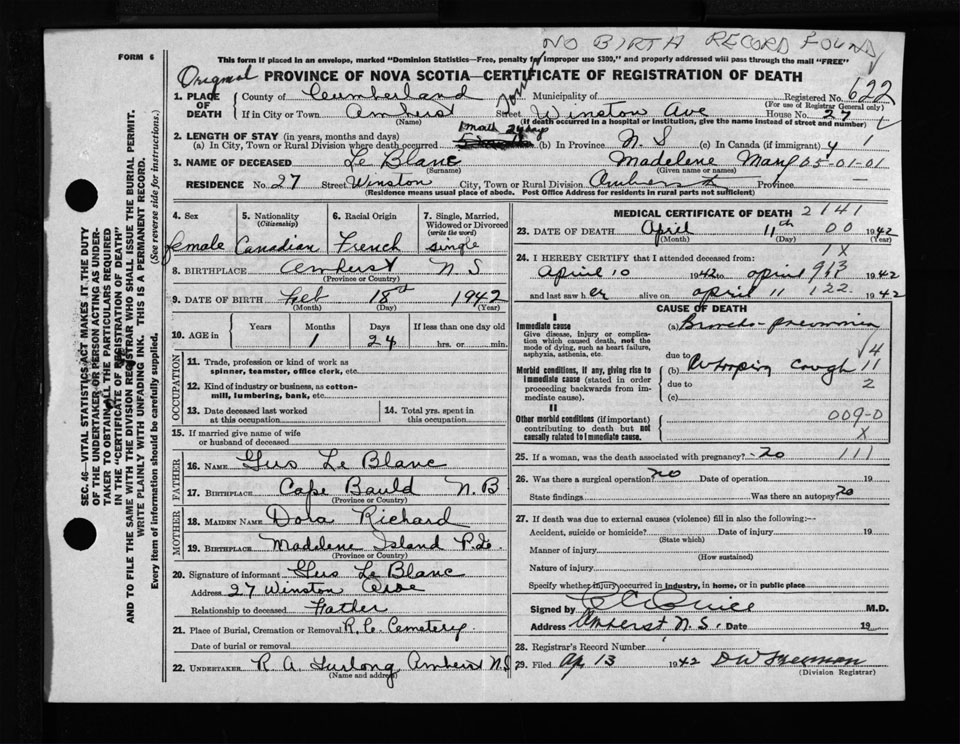 NO BIRTH RECORD FOUND
FORM 6
This form if placed in an envelope, marked "Dominion Statistics—Free, penalty for improper use $300," and properly addressed will pass through the mail "FREE"
Original PROVINCE OF NOVA SCOTIA—CERTIFICATE OF REGISTRATION OF DEATH
1. PLACE OF DEATH County of Cumberland Municipality of Registered No. 622
(For use of Registrar General only)
If in City or Town Amherst Street Winston Ave House No. 27
(Name) (If death occurred in a hospital or institution, give the name instead of street and number)
2. LENGTH OF STAY (in years, months and days) 1 month 24 days
(a) In City, Town or Rural Division where death occurred (b) In Province N. S (c) In Canada (if immigrant)
3. NAME OF DECEASED Le Blanc Madelene Mary 05-01-01
(Surname) (Given name or names)
RESIDENCE No. 27 Street Winston City, Town or Rural Division Amherst Province
(Residence means usual place of abode. Post Office Address for residents in rural parts not sufficient)
4. Sex
female
5. Nationality
(Citizenship)
Canadian
6. Racial Origin
French
7. Single, Married, Widowed or Divorced
(write the word)
single
8. BIRTHPLACE Amherst N S
(Province or Country)
9. DATE OF BIRTH Feb 18 1942
(Month) (Day) (Year)
10. AGE in Years Months Days If less than one day old
1 24 hrs. or min.
OCCUPATION
11. Trade, profession or kind of work as
spinner, teamster, office clerk, etc.
12. Kind of industry or business, as cotton-
mill, lumbering, bank, etc.
13. Date deceased last worked
at this occupation
14. Total yrs. spent in
this occupation
15. If married give name of wife
or husband of deceased
FATHER
16. NAME Gus Le Blanc
17. BIRTHPLACE Cape Bauld N.B
(Province or Country)
MOTHER
18. MAIDEN NAME Dora Richard
19. BIRTHPLACE Madelene Island
(Province or Country)
20. Signature of informant Gus Le Blanc
Address 27 Winston Ave
Relationship to deceased Father
21. Place of Burial, Cremation or Removal R. C. Cemetery
Date of burial or removal
22. UNDERTAKER R A Furlong, Amherst N.S
(Name and address)
MEDICAL CERTIFICATE OF DEATH 2141
23. DATE OF DEATH April 11th 00 1942
(Month) (Day) (Year)
24. I HEREBY CERTIFY that I attended deceased from: 1X
April 10 1942 to April 1942
and last saw her alive on April 11 122 1942
CAUSE OF DEATH
I
Immediate cause
Give disease, injury or complica-
tion which caused death, not the
mode of dying, such as heart failure,
asphyxia, asthenia, etc.
(a) Broncho-pneumonia
due to
Morbid conditions, if any, giving rise to
immediate cause (stated in order
proceeding backwards from im-
mediate cause).
(b) Whooping cough 11
due to 2
(c)
II
Other morbid conditions (if important)
contributing to death but not
causally related to immediate cause.
009-0
X
25. If a woman, was the death associated with pregnancy? no 111
26. Was there a surgical operation? no Date of operation 19
State findings Was there an autopsy? no
27. If death was due to external causes (violence) fill in also the following:—
Accident, suicide or homicide? Date of injury 19
(State which)
Manner of injury
(How sustained)
Nature of injury
Specify whether injury occurred in industry, in home, or in public place
Signed by M.D.
Address Amherst N. S. Date 19
28. Registrar's Record Number
29. Filed Ap 13 1942
(Division Registrar)
SEC. 46—VITAL STATISTICS ACT MAKES IT THE DUTY
OF THE UNDERTAKER OR PERSON ACTING AS UNDER-
TAKER TO OBTAIN ALL THE PARTICULARS REQUIRED
IN THE "CERTIFICATE OF REGISTRATION OF DEATH"
AND TO FILE THE SAME WITH THE DIVISION REGISTRAR WHO SHALL ISSUE THE BURIAL PERMIT.
WRITE PLAINLY WITH UNFADING INK. THIS IS A PERMANENT RECORD.
Every item of information should be carefully supplied.
(See reverse side for instructions.)